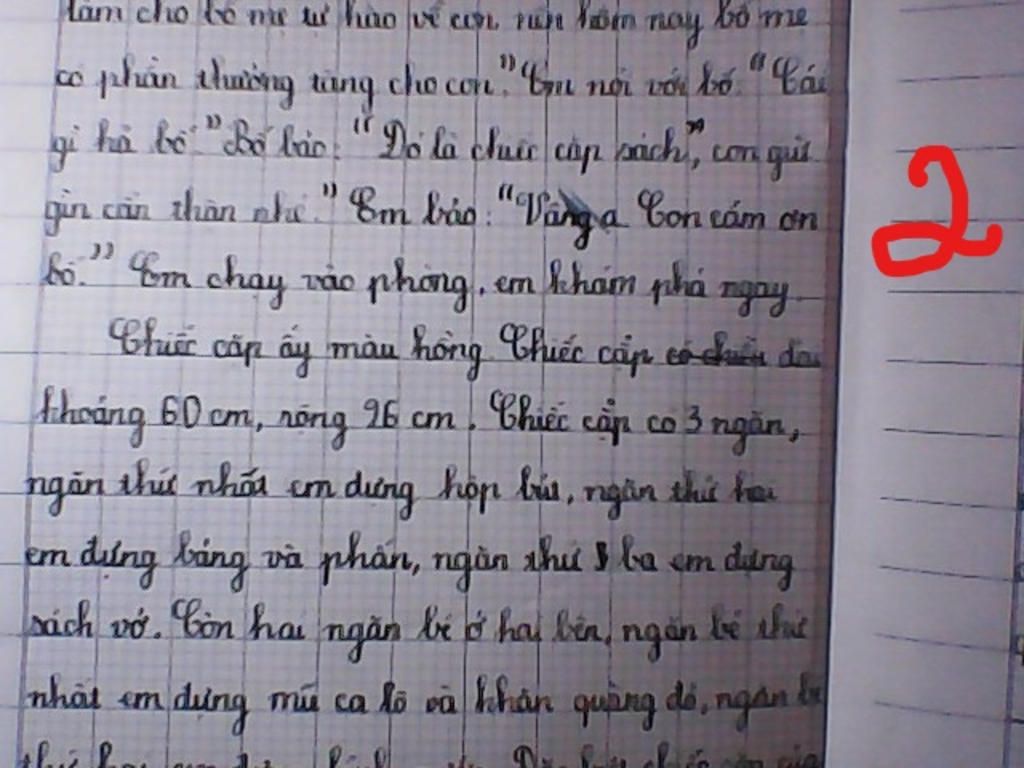 làm cho bố mẹ tự hào về con nên hôm nay bố mẹ
có phần thưởng tặng cho con." Em nói với bố: "Cái
gì hả bố." Bố bảo: "Đó là chiếc cặp sách", con giữ
gìn cẩn thận nhé." Em bảo: "Vâng ạ Con cám ơn
bố." Em chạy vào phòng, em khám phá ngay.
Chiếc cặp ấy màu hồng. Chiếc cặp có chiều dài
khoảng 60 cm, rộng 26 cm. Chiếc cặp có 3 ngăn,
ngăn thứ nhất em đựng hộp bút, ngăn thứ hai
em đựng bảng và phấn, ngăn thứ ba em đựng
sách vở. Còn hai ngăn bé ở hai bên, ngăn bé thứ
nhất em đựng mũ ca lô và khăn quàng đỏ, ngăn bé
thứ hai em
2